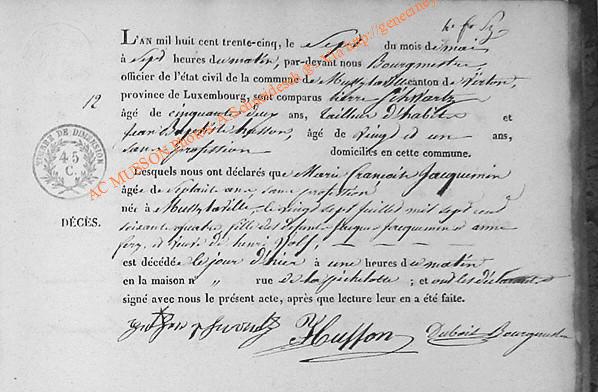 L'AN mil huit cent trente-cinq, le Sept du mois de mai
à Sept heures du matin, par-devant nous Bourgmestre
officier de l'état civil de la commune de Mussy la ville canton de Virton,
province de Luxembourg, sont comparus pierre Schwartz
12
âgé de cinquante deux ans, tailleur d'habits et
jean Baptiste husson, âgé de vingt et un ans,
Sans profession domiciliés en cette commune.
TIMBRE DE DIMENSION
45
C.
Lesquels nous ont déclarés que Marie françoise Jacquemin
âgée de Septante ans sans profession
née à Mussy la ville, le vingt sept juillet mil sept cent
DÉCÈS.
soixante quatre fille des défunts jacque jacquemin et anne
et veuve de henri
est décédée le jour d'hier à une heures du matin
en la maison n° " rue de la ; et ont les déclarants
signé avec nous le présent acte, après que lecture leur en a été faite.
JHusson Dubois Bourgmestre
AC MUSSON Photos A.Schneidesch